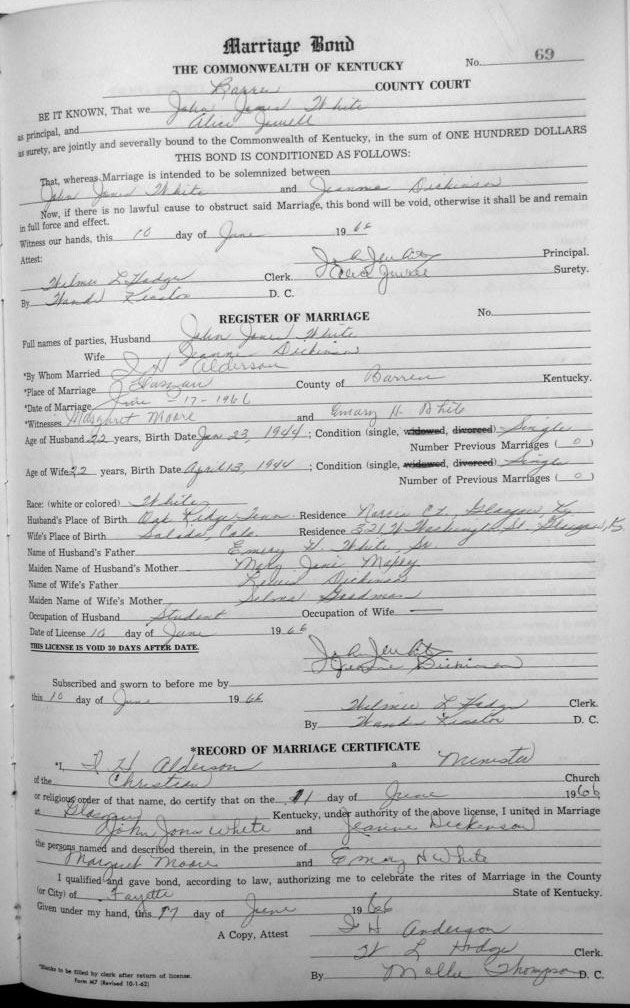 Marriage Bond
THE COMMONWEALTH OF KENTUCKY No. 69
Barren COUNTY COURT
BE IT KNOWN, That we John Jones White
as principal, and Alice Jewell
as surety, are jointly and severally bound to the Commonwealth of Kentucky, in the sum of ONE HUNDRED DOLLARS
THIS BOND IS CONDITIONED AS FOLLOWS:
That, whereas Marriage is intended to be solemnized between
John Jones White and Jeanne Dickinson
Now, if there is no lawful cause to obstruct said Marriage, this bond will be void, otherwise it shall be and remain
in full force and effect.
Witness our hands, this 10 day of June 1966
Attest: Principal.
Wilma L Hodge Clerk. Alice Jewell Surety.
By D. C.
REGISTER OF MARRIAGE No.
Full names of parties, Husband John Jones White
Wife Jeanne Dickinson
*By Whom Married I H Alderson
*Place of Marriage Glasgow County of Barren Kentucky.
*Date of Marriage June -17-1966
*Witnesses Margaret Moore and Emery H White
Age of Husband 22 years, Birth Date Jan 23, 1944; Condition (single, widowed, divorced) Single
Number Previous Marriages ( 0 )
Age of Wife 22 years, Birth Date April 13, 1944; Condition (single, widowed, divorced) Single
Number of Previous Marriages ( 0 )
Race: (white or colored) White
Husband's Place of Birth Oak Ridge Tenn Residence Ct, Glasgow, Ky
Wife's Place of Birth Salida, Colo Residence 521 W Washington St. Glasgow, Ky
Name of Husband's Father Emery H. White, Sr.
Maiden Name of Husband's Mother Mary Jane
Name of Wife's Father Dickinson
Maiden Name of Wife's Mother Selma Goodman
Occupation of Husband Student Occupation of Wife —
Date of License 10 day of June 1966
THIS LICENSE IS VOID 30 DAYS AFTER DATE.
Jeanne Dickinson
Subscribed and sworn to before me by
this 10 day of June 1966 Wilma L Hodge Clerk.
By D. C.
*RECORD OF MARRIAGE CERTIFICATE
*I, I H Alderson a Minister
of the Christian Church
or religious order of that name, do certify that on the 11 day of June 1966
at Glasgow Kentucky, under authority of the above license, I united in Marriage
John Jones White and Jeanne Dickenson
the persons named and described therein, in the presence of
Margaret Moore and Emery H White
I qualified and gave bond, according to law, authorizing me to celebrate the rites of Marriage in the County
(or City) of Fayette State of Kentucky.
Given under my hand, this 17 day of June 1966
I H Anderson
A Copy, Attest W L Hodge Clerk.
*Blanks to be filled by clerk after return of license.
Form M7 (Revised 10-1-62) By Mollie Thompson D. C.